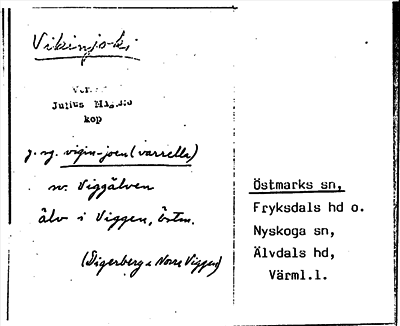 Vikinjoki
Julius Mägiste
kop
g. sg. vigin-joen (varrella)
sv. Viggälven
älv i Viggen, Östm.
(Digerberg o Norra Viggen)
Östmarks sn,
Fryksdals hd o.
Nyskoga sn,
Älvdals hd,
Värml.l.